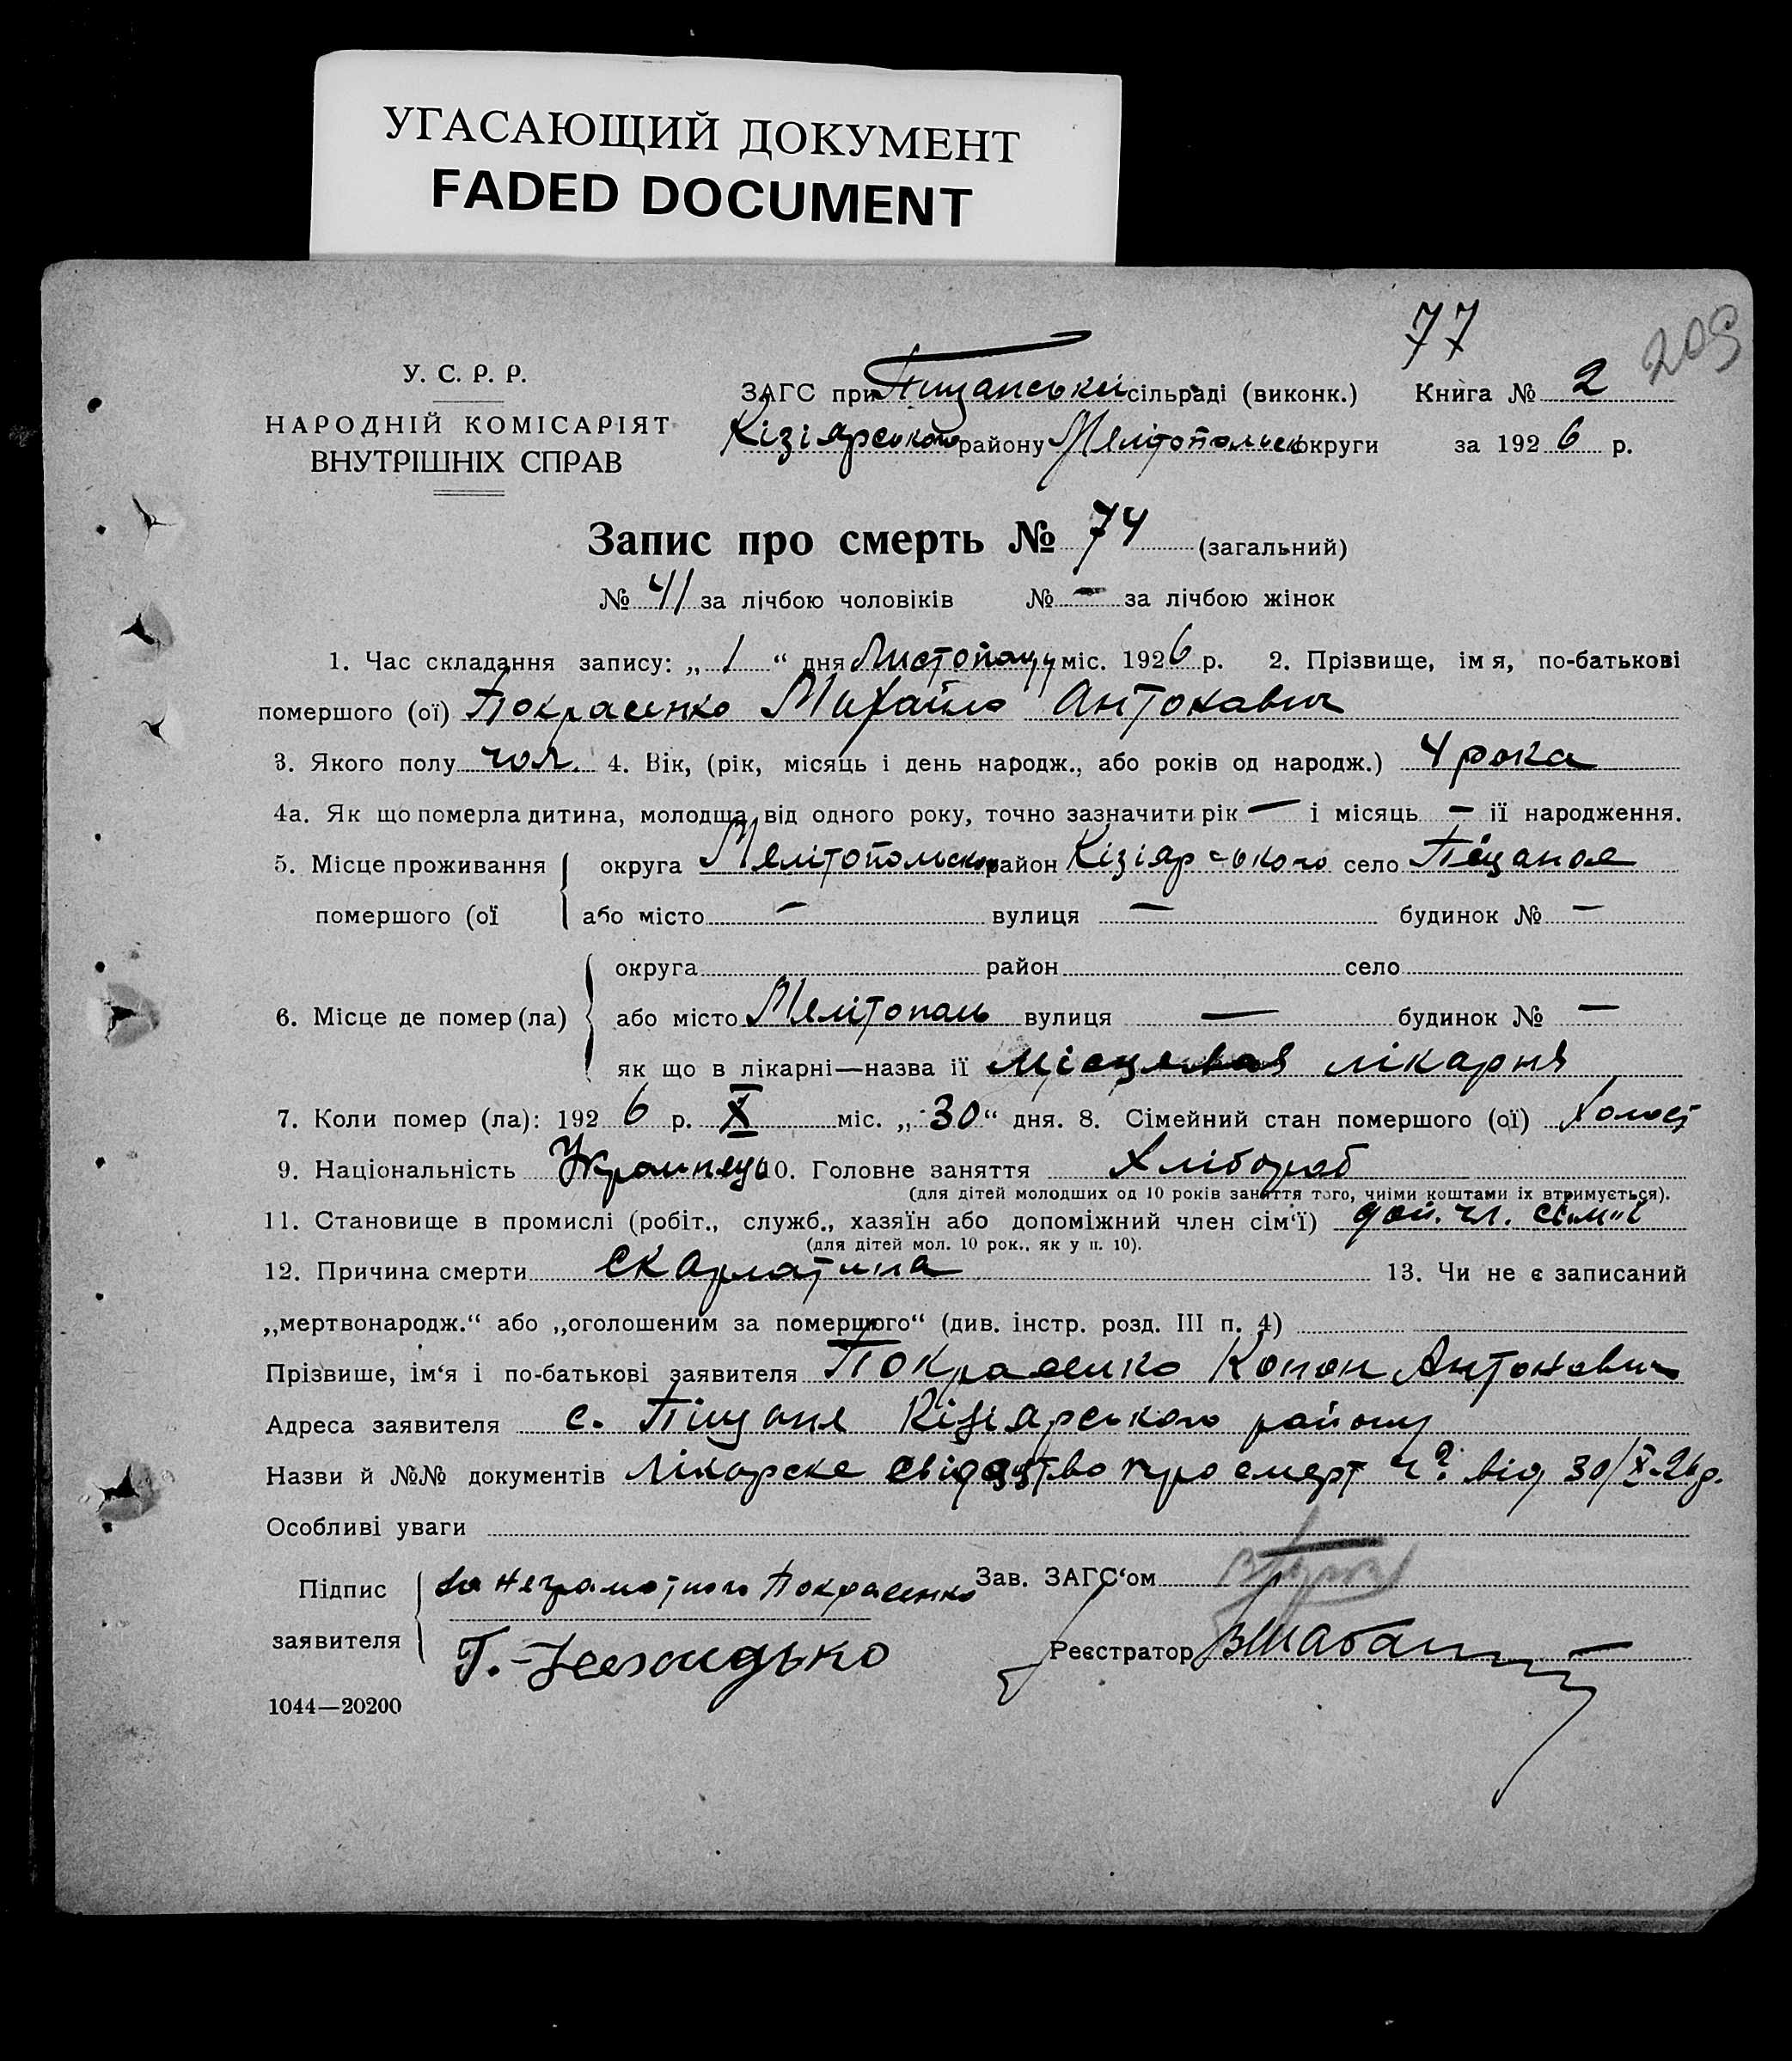 УГАСАЮЩИЙ ДОКУМЕНТ
FADED DOCUMENT
77
209
У. С. Р. Р.
НАРОДНІЙ КОМІСАРІЯТ
ВНУТРІШНІХ СПРАВ
ЗАГС при Піщанській сільраді (виконк.) Книга № 2
Кізіярського району Мелітопольськ округи за 1926 р.
Запис про смерть № 74 (загальний)
№ 41 за лічбою чоловіків № — за лічбою жінок
1. Час складання запису: „ 1 “ дня Листопаду міс. 1926 р. 2. Прізвище, імя, по-батькові
помершого (ої) Покрасенко Михайло Антонавич
3. Якого полу чол. 4. Вік, (рік, місяць і день народж., або років од народж.) 4 рока
4а. Як що померла дитина, молодша від одного року, точно зазначити рік — і місяць — її народження.
5. Місце проживання округа Мелітопольська район Кізіярського село Піщаное
помершого (ої або місто — вулиця — будинок № —
округа район село
6. Місце де помер (ла) або місто Мелітополь вулиця — будинок № —
як що в лікарні—назва її місцевая лікарня
7. Коли помер (ла): 1926 р. X міс. „ 30 “ дня. 8. Сімейний стан помершого (ої) Холост
9. Національність Украинець 10. Головне заняття Хлібороб
(для дітей молодших од 10 років заняття того, чиїми коштами їх втримується).
11. Становище в промислі (робіт., служб., хазяїн або допоміжний член сім‘ї) доп. чл. сімїї
(для дітей мол. 10 рок., як у п. 10).
12. Причина смерти Скарлатина 13. Чи не є записаний
„мертвонародж.“ або „оголошеним за помершого“ (див. інстр. розд. III п. 4)
Прізвише, ім‘я і по-батькові заявителя Покрасенко Конон Антонавич
Адреса заявителя с. Піщане Кізіярського району
Назви й №№ документів Лікарске свідоцтво про смерт ч? від 30/X-26р.
Особливі уваги
Підпис За неграмотного Покрасенко Зав. ЗАГС‘ом
заявителя Г. Реєстратор
1044—20200